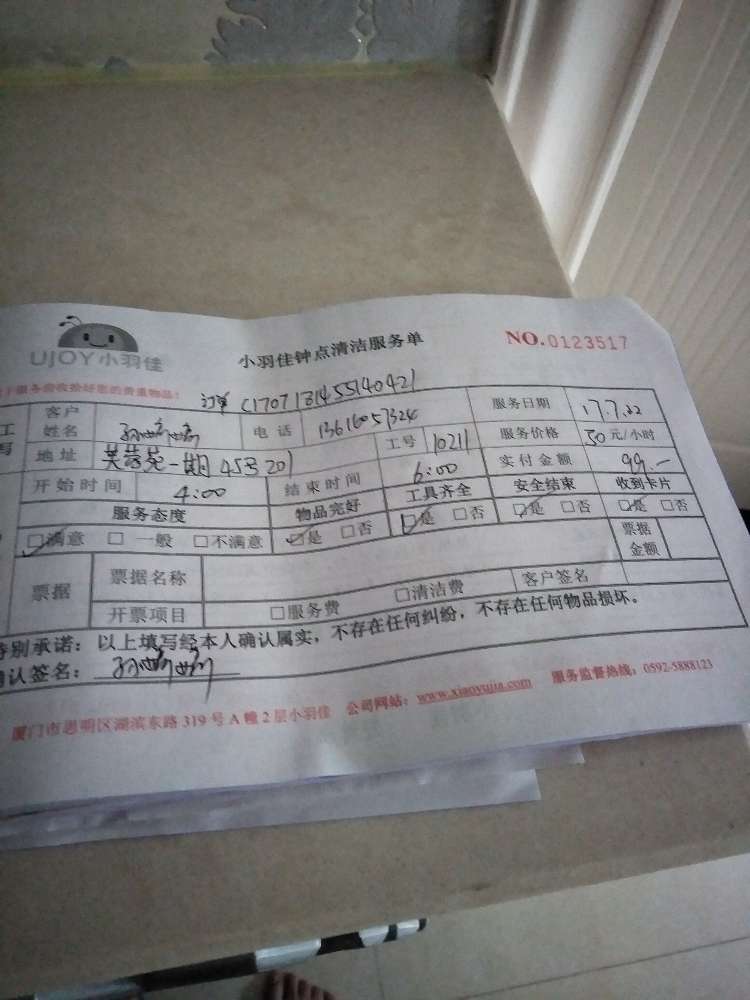 UJOY小羽佳
小羽佳钟点清洁服务单
NO.0123517
服务前收拾好您的贵重物品!
订单 C1707131455140421
客户姓名 电话 13616057324 服务日期 17.7.22
地址 芙蓉苑一期45号201 工号 10211 服务价格 50元/小时
开始时间 4:00 结束时间 6:00 实付金额 99.—
服务态度 物品完好 工具齐全 安全结束 收到卡片
☑满意 □一般 □不满意 ☑是 □否 ☑是 □否 ☑是 □否 ☑是 □否
票据 票据名称 票据金额
开票项目 □服务费 □清洁费 客户签名
特别承诺:以上填写经本人确认属实,不存在任何纠纷,不存在任何物品损坏。
确认签名:
厦门市思明区湖滨东路319号A幢2层小羽佳 公司网站:www.xiaoyujia.com 服务监督热线:0592-5888123